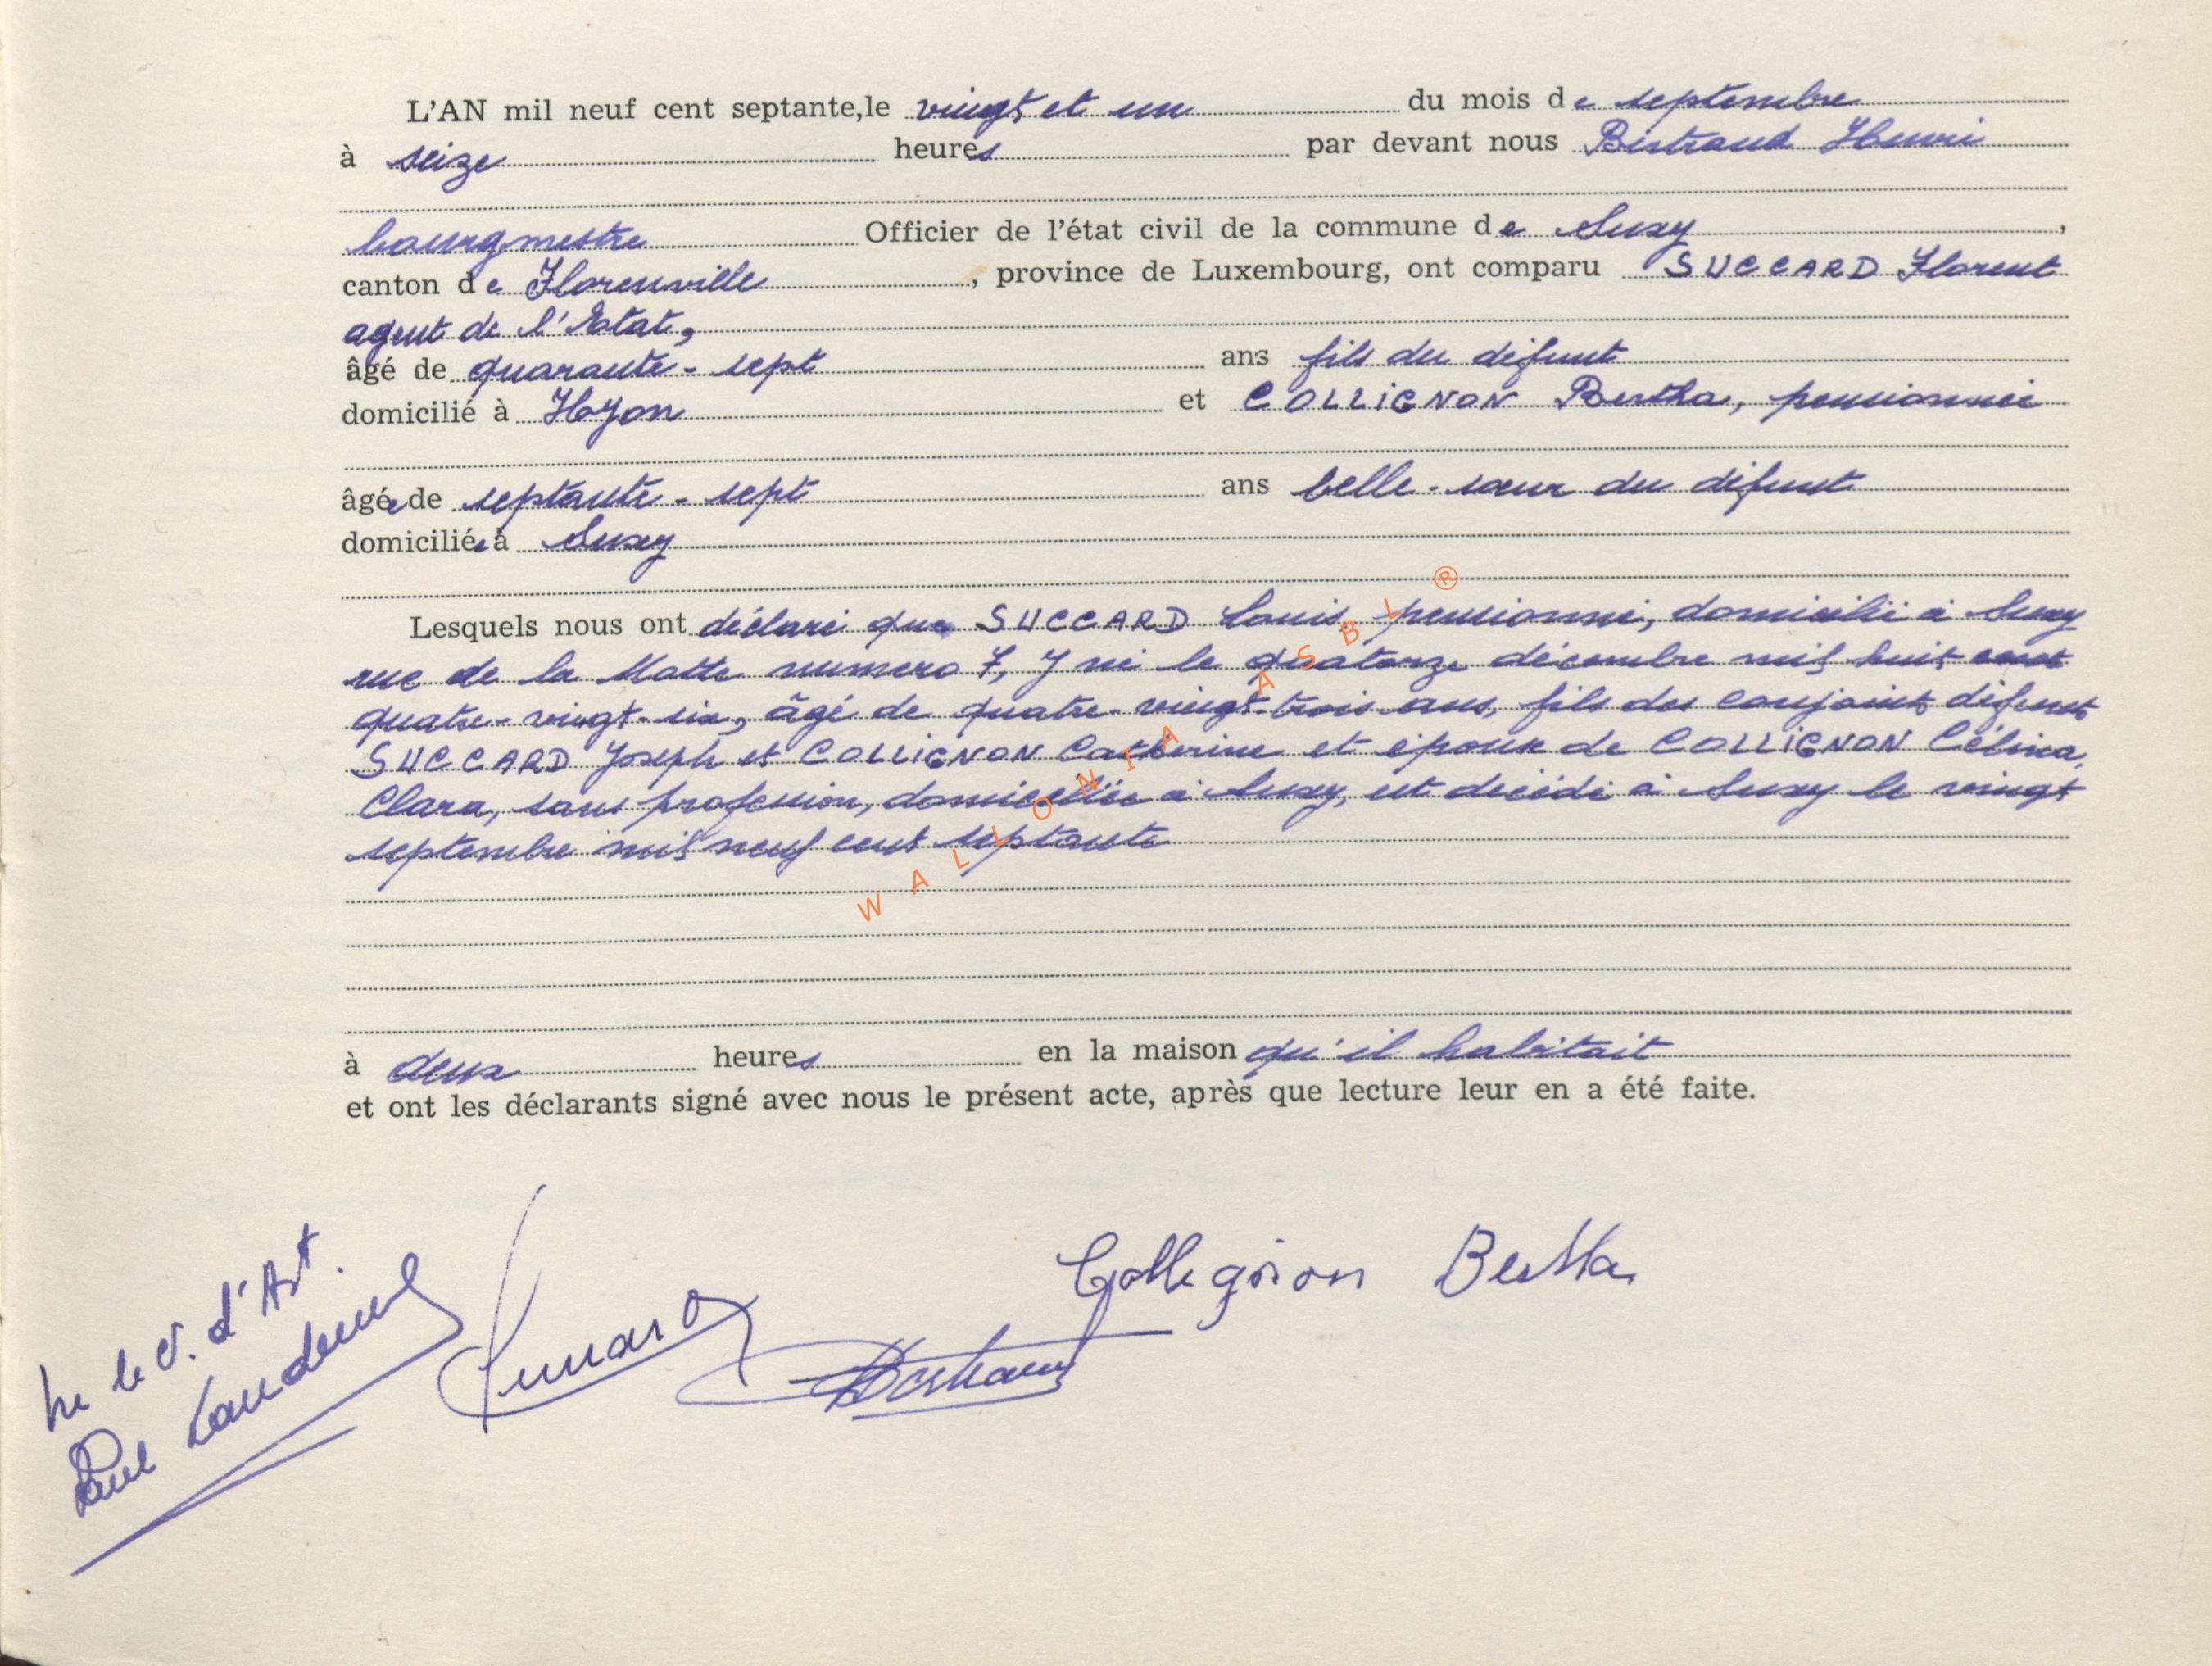 L'AN mil neuf cent septante, le vingt et un du mois de septembre
à seize heures par devant nous Bertrand Henri
bourgmestre Officier de l'état civil de la commune de Suxy,
canton de Florenville, province de Luxembourg, ont comparu SUCCARD Florent
agent de l'Etat,
âgé de quarante-sept ans fils du défunt
domicilié à Hyon et COLLIGNON Bertha, pensionnée
âgée de septante-sept ans belle-soeur du défunt
domiciliée à Suxy
Lesquels nous ont déclaré que SUCCARD Louis, pensionné, domicilié à Suxy
rue de la Matte numéro 7, y né le quatorze décembre mil huit cent
quatre-vingt-six, âgé de quatre-vingt-trois ans, fils des conjoints défunts
SUCCARD Joseph et COLLIGNON Catherine et époux de COLLIGNON Célina,
Clara, sans profession, domiciliée à Suxy, est décédé à Suxy le vingt
septembre mil neuf cent septante
à deux heures en la maison qu'il habitait
et ont les déclarants signé avec nous le présent acte, après que lecture leur en a été faite.
Collignon Bertha
Bertrand
WALLONIA ASBL ®